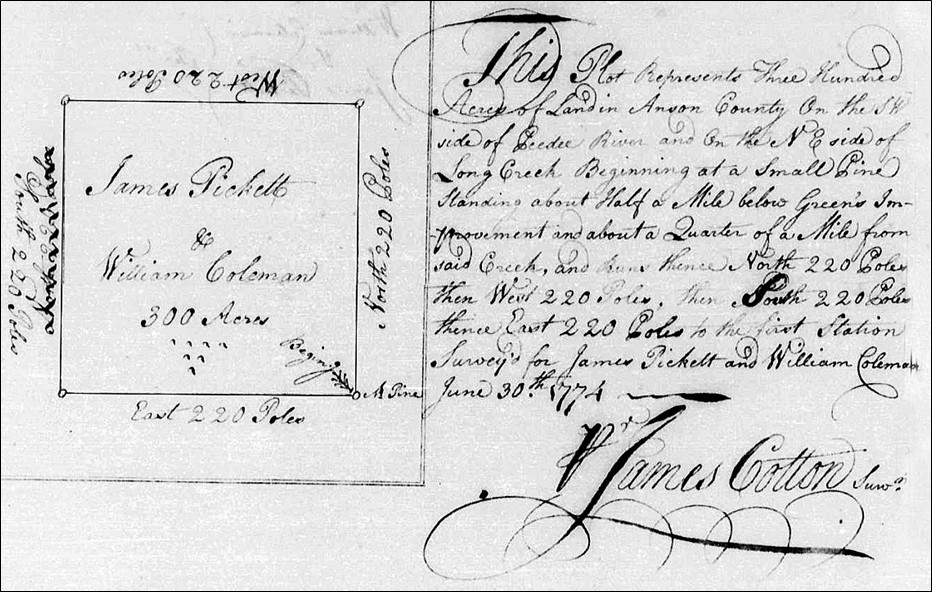 West 220 Poles
South 220 Poles
James Pickett
&
William Coleman
300 Acres
Begin.g
A Pine
North 220 Poles
East 220 Poles
This Plot Represents Three Hundred
Acres of Land in Anson County On the SW
side of Peedee River and On the N E side of
Long Creek Beginning at a Small Pine
Standing about Half a Mile below Green's Im-
provement and about a Quarter of a Mile from
said Creek, and Runs thence North 220 Poles
then West 220 Poles, then South 220 Poles
thence East 220 Poles to the first Station
Survey'd for James Pickett and William Coleman
June 30th 1774
Pr
James Cotton Survr